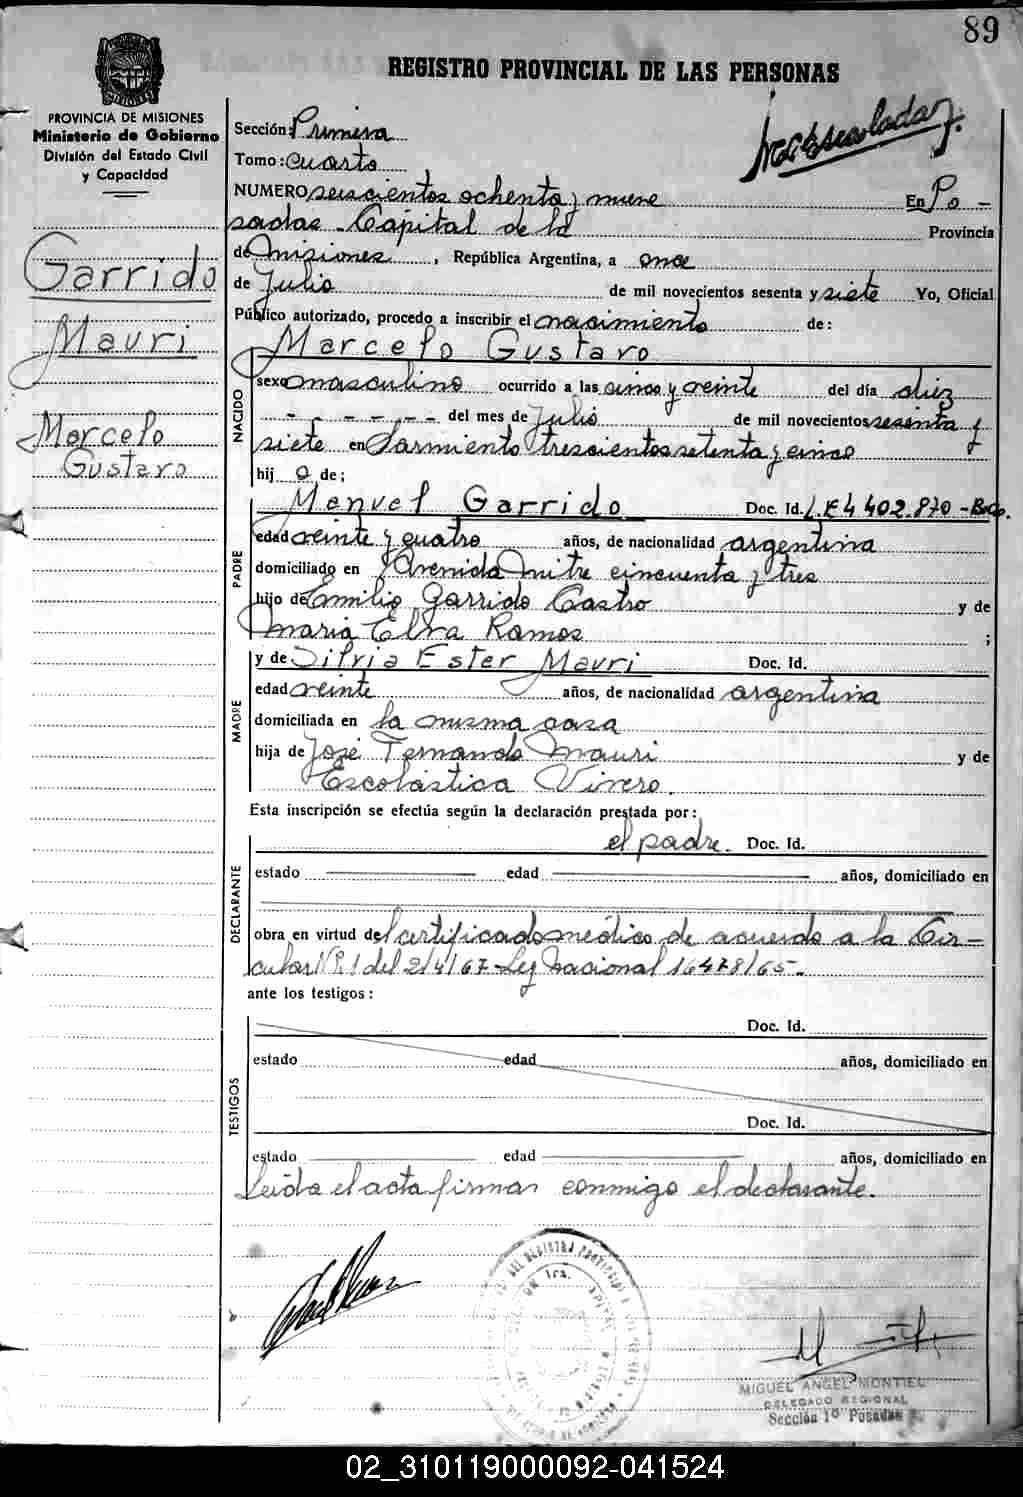 89
REGISTRO PROVINCIAL DE LAS PERSONAS
PROVINCIA DE MISIONES
Ministerio de Gobierno
División del Estado Civil
y Capacidad
Garrido
Mauri
Marcelo
Gustavo
Sección: Primera
Tomo: cuarto
NUMERO seiscientos ochenta y nueve En Po-
sadas Capital de la Provincia
de Misiones, República Argentina, a once
de Julio de mil novecientos sesenta y siete Yo, Oficial
Público autorizado, procedo a inscribir el nacimiento de:
Marcelo Gustavo
NACIDO
sexo masculino ocurrido a las cinco y veinte del día diez
del mes de Julio de mil novecientos sesenta y
siete en Sarmiento trescientos setenta y cinco
hij o de:
PADRE
Manuel Garrido Doc. Id. L.E 4 402.870 -
edad veinte y cuatro años, de nacionalidad argentina
domiciliado en Avenida Mitre cincuenta y tres
hijo de Emilio Garrido Castro y de
Maria Elva Ramos ;
MADRE
y de Silvia Ester Mauri Doc. Id.
edad veinte años, de nacionalidad argentina
domiciliada en la misma casa
hija de José Fernando Mauri y de
Escolástica Vivero.
Esta inscripción se efectúa según la declaración prestada por:
DECLARANTE
el padre. Doc. Id.
estado edad años, domiciliado en
obra en virtud del certificado médico de acuerdo a la Cir-
cular Nº 1 del 2/4/67 Ley Nacional 16478/65-
ante los testigos:
TESTIGOS
Doc. Id.
estado edad años, domiciliado en
Doc. Id.
estado edad años, domiciliado en
Leida el acta firman conmigo el declarante.
MIGUEL ANGEL MONTIEL
DELEGADO REGIONAL
Sección 1º Posadas
02_310119000092-041524